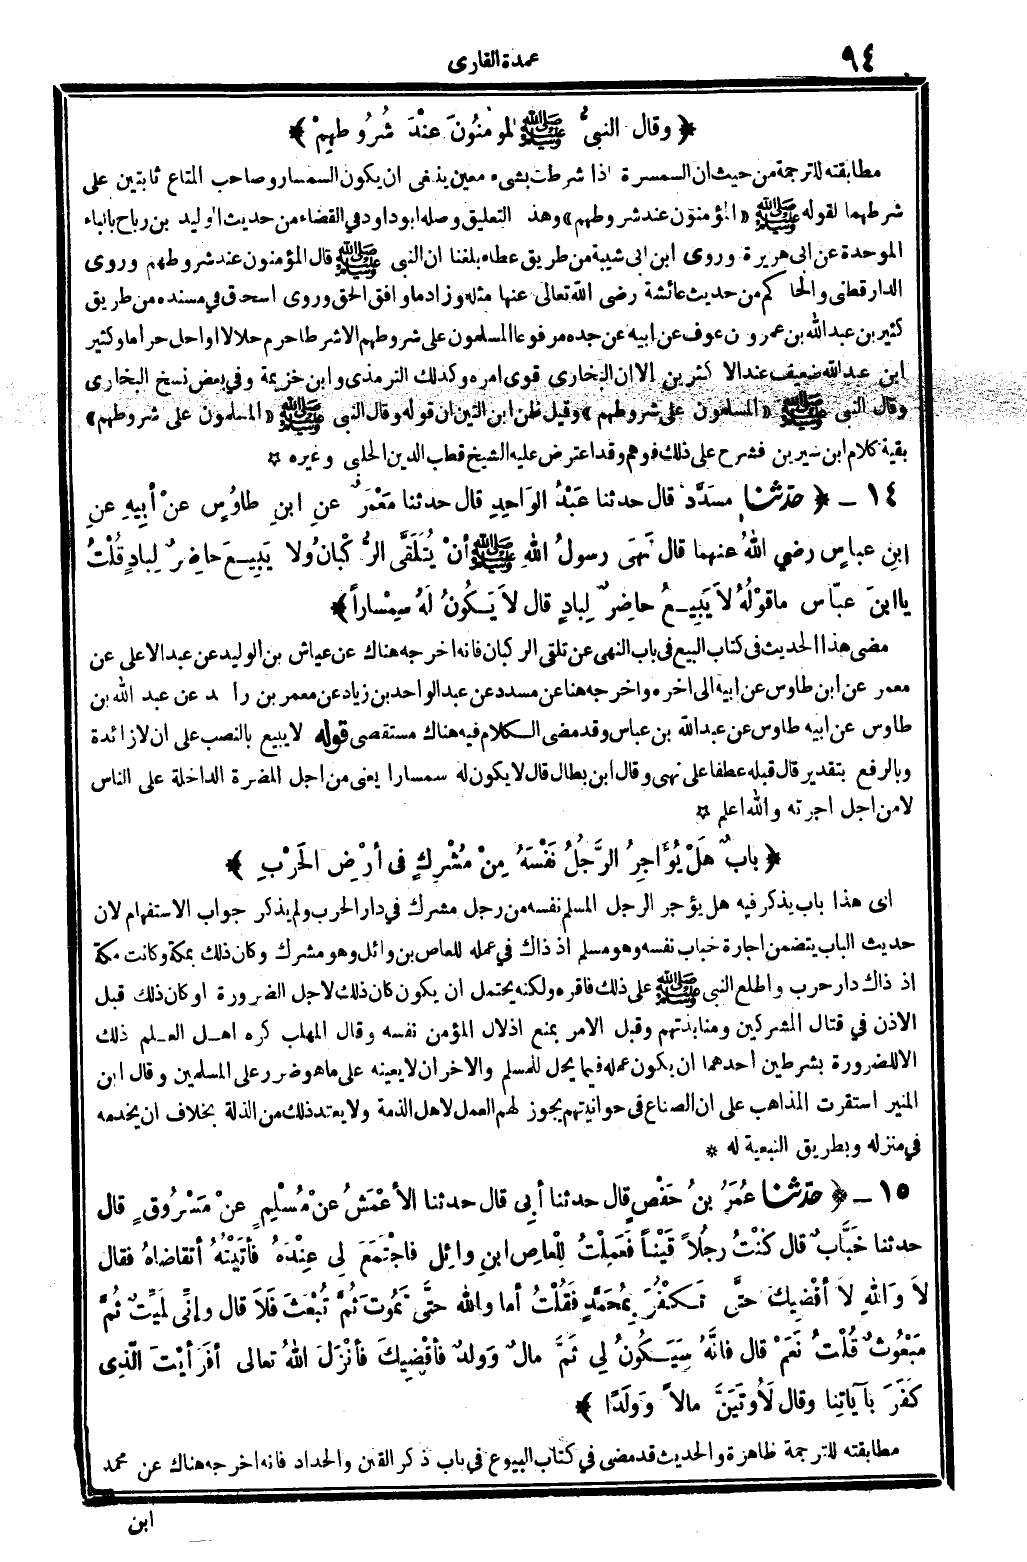 ٩٤
عمدة القارى
﴿ وقال النبىُّ ﷺ المؤمِنُونَ عِنْدَ شُرُوطِهِمْ ﴾
مطابقته للترجمة من حيث ان السمسرة اذا شرطت بشىء معين ينبغى ان يكون السمسار وصاحب المتاع ثابتين على
شرطهما لقوله ﷺ «المؤمنون عند شروطهم» وهذا التعليق وصله ابو داود في القضاء من حديث الوليد بن رباح بالباء
الموحدة عن ابى هريرة وروى ابن ابى شيبة من طريق عطاء بلغنا ان النبى ﷺ قال المؤمنون عند شروطهم وروى
الدارقطنى والحاكم من حديث عائشة رضى الله تعالى عنها مثله وزاد ما وافق الحق وروى اسحق في مسنده من طريق
كثير بن عبدالله بن عمرو بن عوف عن ابيه عن جده مرفوعا المسلمون على شروطهم الا شرطا حرم حلالا او احل حراما وكثير
ابن عبدالله ضعيف عند الاكثرين الا ان البخارى قوى امره وكذلك الترمذى وابن خزيمة وفي بعض نسخ البخارى
وقال النبى ﷺ «المسلمون على شروطهم» وقيل ظن ابن التين ان قوله وقال النبى ﷺ «المسلمون على شروطهم»
بقية كلام ابن سيرين فشرح على ذلك فوهم وقد اعترض عليه الشيخ قطب الدين الحلبى وغيره ✡
١٤ ـ ﴿ حدَّثنا مسَدَّد قال حدثنا عَبْدُ الوَاحِدِ قال حدثنا مَعْمَر عنِ ابنِ طاوُسٍ عنْ أبِيهِ عنِ
ابنِ عباسٍ رضي اللهُ عنهما قال نَهَى رسولُ اللهِ ﷺ أنْ يُتَلَقَّى الرُّكْبَانُ ولا يَبِيعَ حاضِرٌ لِبادٍ قُلْتُ
ياابنَ عبّاس ماقوْلُهُ لاَ يَبِيعُ حاضِرٌ لِبادٍ قال لاَ يَكُونُ لَهُ سِمْساراً ﴾
مضى هذا الحديث فى كتاب البيع فى باب النهى عن تلقى الركبان فانه اخرجه هناك عن عياش بن الوليد عن عبد الاعلى عن
معمر عن ابن طاوس عن ابيه الى اخره واخرجه هنا عن مسدد عن عبد الواحد بن زياد عن معمر بن راشد عن عبد الله بن
طاوس عن ابيه طاوس عن عبدالله بن عباس وقد مضى الكلام فيه هناك مستقصى قوله لا يبيع بالنصب على ان لا زائدة
وبالرفع بتقدير قال قبله عطفا على نهى وقال ابن بطال قال لا يكون له سمسارا يعنى من اجل المضرة الداخلة على الناس
لا من اجل اجرته والله اعلم ✡
﴿ بابٌ هَلْ يُؤَاجِرُ الرَّجُلُ نَفْسَهُ مِنْ مُشْرِكٍ فى أرْضِ الحَرْبِ ﴾
اى هذا باب يذكر فيه هل يؤجر الرجل المسلم نفسه من رجل مشرك في دار الحرب ولم يذكر جواب الاستفهام لان
حديث الباب يتضمن اجارة خباب نفسه وهو مسلم اذ ذاك في عمله للعاص بن وائل وهو مشرك وكان ذلك بمكة وكانت مكة
اذ ذاك دار حرب واطلع النبى ﷺ على ذلك فاقره ولكنه يحتمل ان يكون كان ذلك لاجل الضرورة او كان ذلك قبل
الاذن في قتال المشركين ومنابذتهم وقبل الامر بمنع اذلال المؤمن نفسه وقال المهلب كره اهل العلم ذلك
الا للضرورة بشرطين أحدهما ان يكون عمله فيما يحل للمسلم والاخر ان لا يعينه على ما هو ضرر على المسلمين وقال ابن
المنير استقرت المذاهب على ان الصناع في حوانيتهم يجوز لهم العمل لاهل الذمة ولا يعتد ذلك من الذلة بخلاف ان يخدمه
في منزله وبطريق التبعية له *
١٥ ـ ﴿ حدَّثنا عُمَرُ بنُ حَفْصٍ قال حدثنا أبى قال حدثنا الأعْمَشُ عنْ مُسْلِمٍ عنْ مَسْرُوقٍ قال
حدثنا خَبَّابٌ قال كُنْتُ رجُلاً قَيْناً فَعَمِلْتُ لِلْعاصِ ابنِ وائِلٍ فاجْتَمَعَ لِي عِنْدَهُ فأتَيْتُهُ أتقاضاهُ فقال
لاَ وَاللهِ لاَ أقْضِيكَ حتَّى تَكْفُرَ بِمُحَمَّدٍ فَقُلْتُ أما والله حتَّى تَمُوتَ ثُمَّ تُبْعَثَ فَلاَ قال وإنِّى لَمَيِّتٌ ثُمَّ
مَبْعُوثٌ قُلْتُ نَعَمْ قال فانَّهُ سَيَكُونُ لِي ثَمَّ مالٌ وَوَلدٌ فأقْضِيكَ فأنْزَلَ اللهُ تعالى أفَرَأيْتَ الَّذِى
كَفَرَ بآياتِنا وقال لَأُوتَيَنَّ مالاً وَوَلَدًا ﴾
مطابقته للترجمة ظاهرة والحديث قد مضى في كتاب البيوع في باب ذكر القين والحداد فانه اخرجه هناك عن محمد
ابن